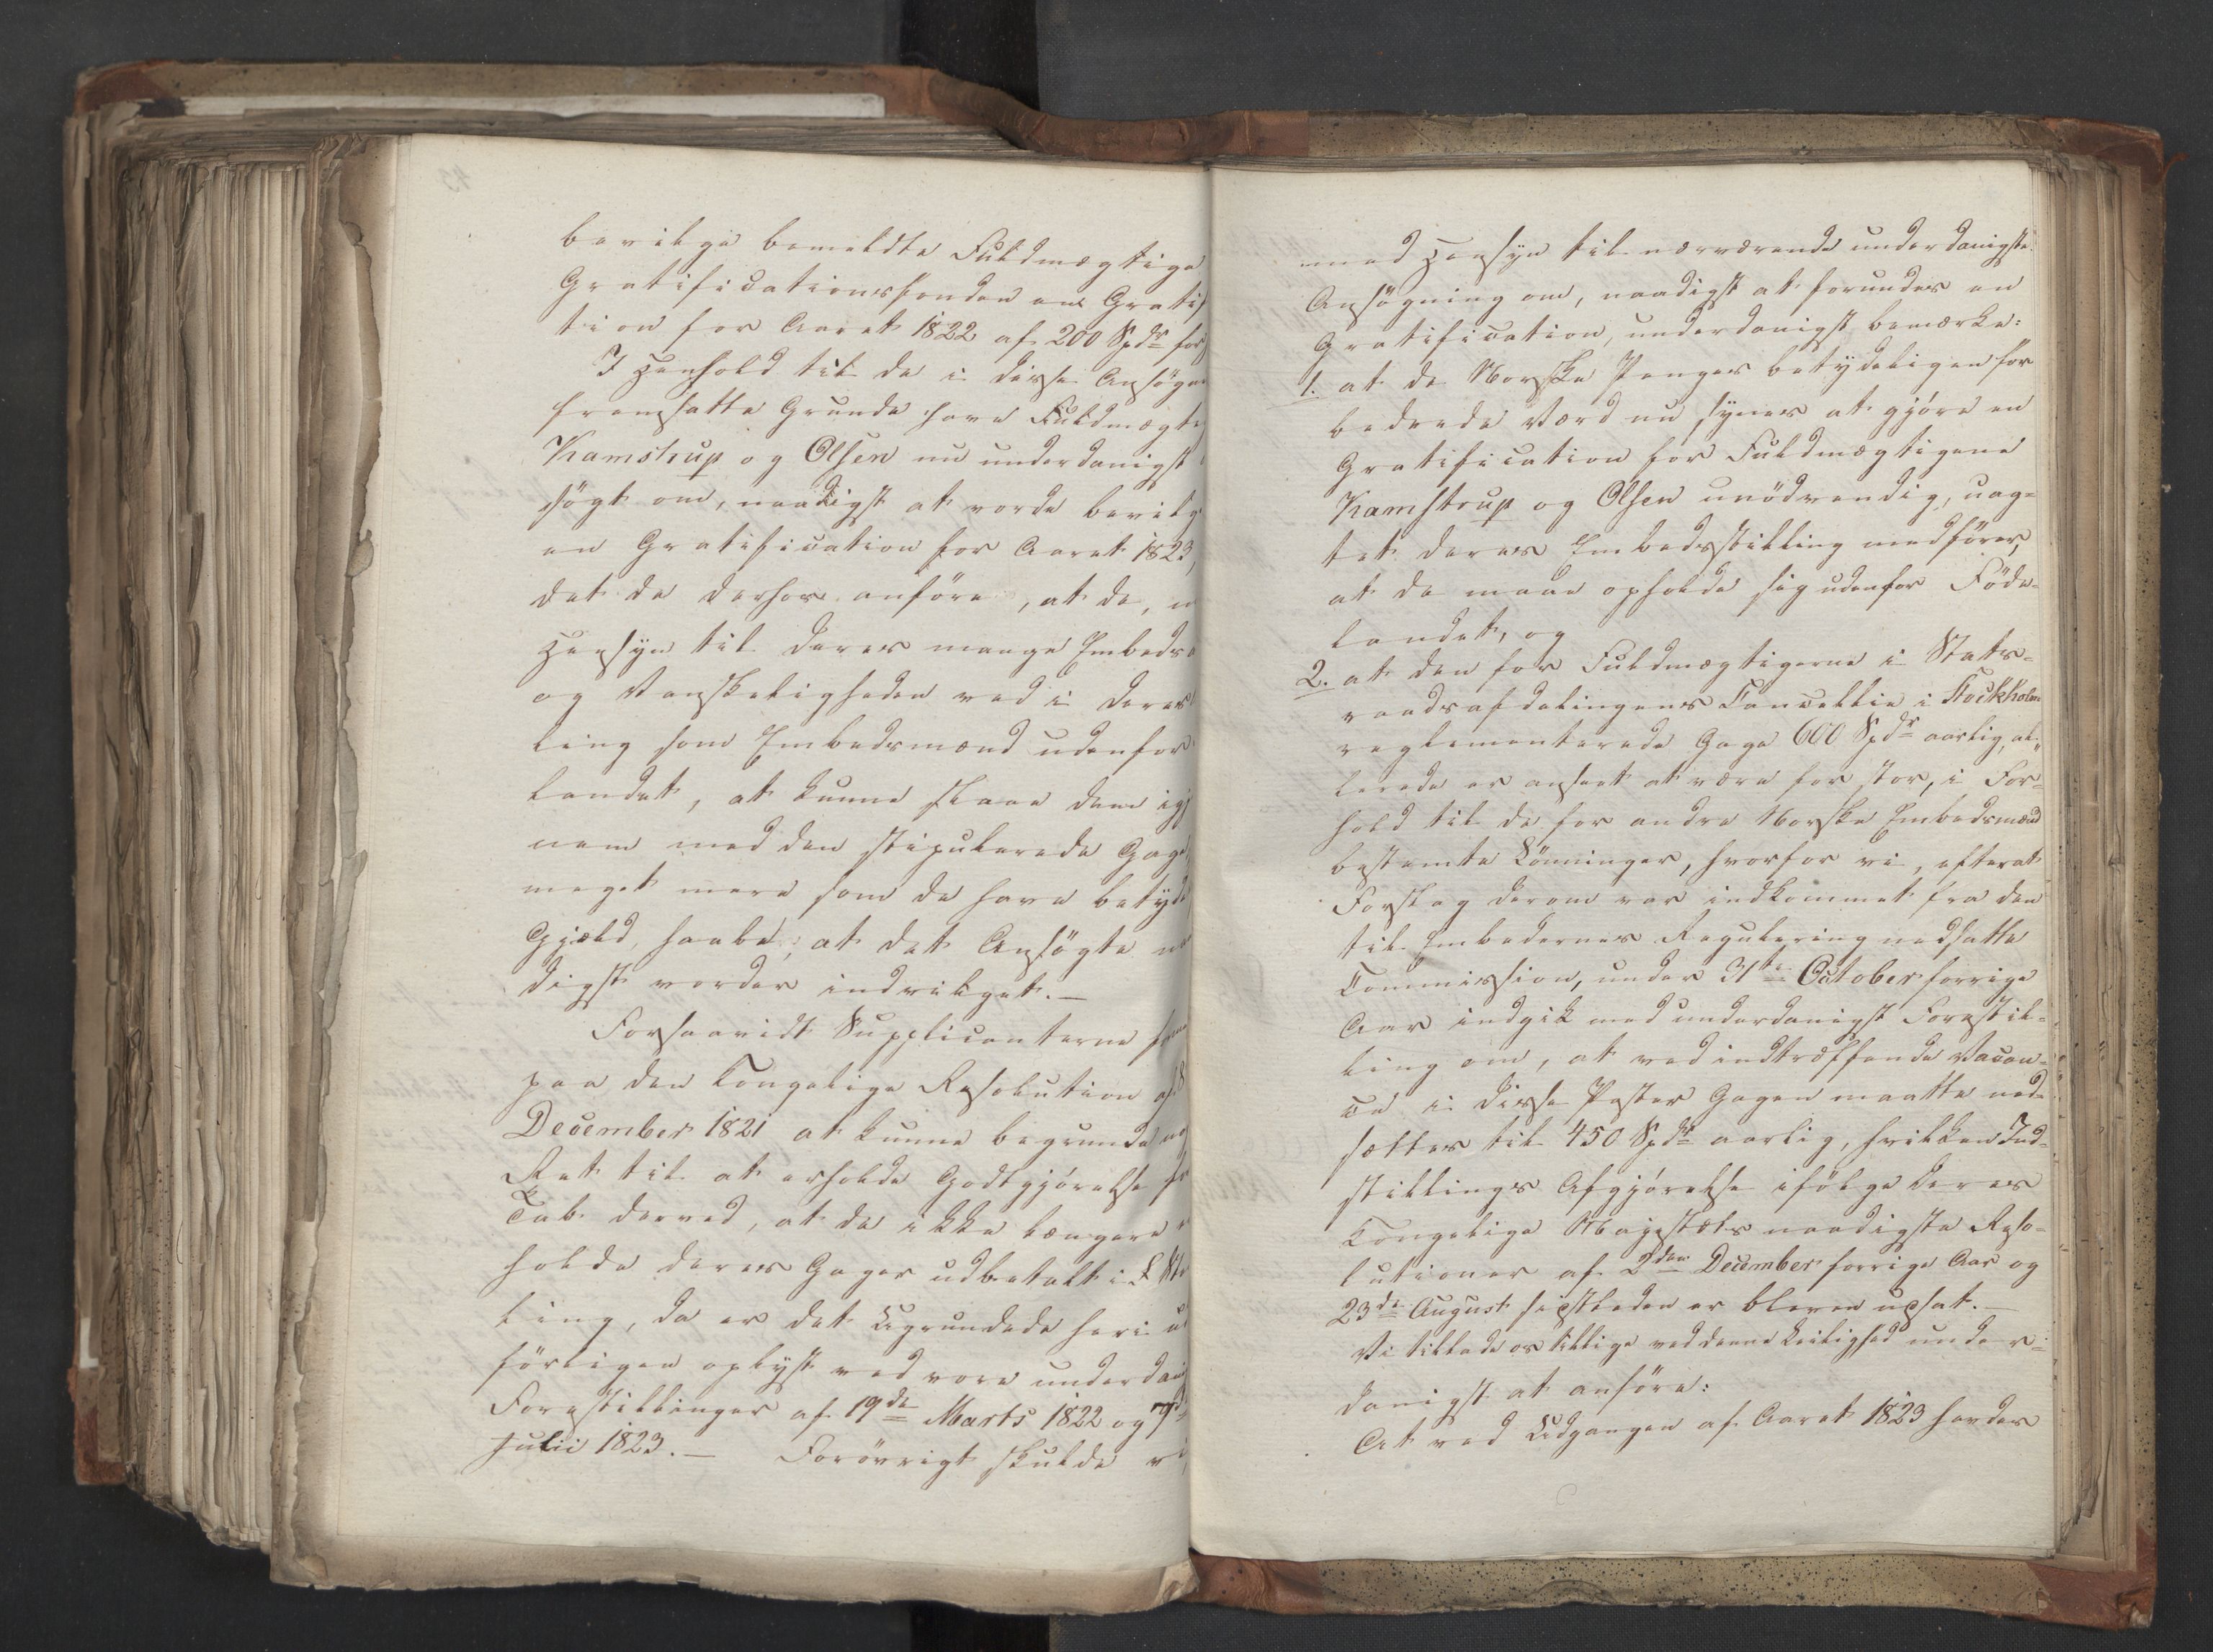 bevilge bemeldte Fuldmægtige
Gratificationsfonden en Gratif
tion for Aaret 1822 af 200 Spdr for
I Henhold til de i disse Ansøgn
fremsatte Grunde have Fuldmægte
Kamstrup og Olsen nu underdanigst
søgt om, naadigst at vorde bevilg
en Gratification for Aaret 1823,
det de derhos anføre, at de, m
Hensyn til deres mange Embeds
og Vanskeligheden ved i deres
ling som Embedsmænd udenfor
landet, at kunne slaae dem igj
nem med den stipulerede Gage,
meget mere som de have betyde
Gjæld, haabe, at det Ansøgte na
digst vorder indvilget. —
Forsaavidt Supplicanterne
paa den Kongelige Resolution af 8
December 1821 at kunne begrunde no
Ret til at erholde Godtgjørelse fo
Tab derved, at de ikke længere
holde deres Gager udbetalt i
ling, da er det Ugrundede heri u
førligen oplyst ved vore underdani
Forestillinger af 19de Marts 1822 og 7de
Julii 1823. — Forøvrigt skulde vi,
med Hensyn til nærværende underdanigste
Ansøgning om, naadigst at forundes en
Gratification, underdanigst bemærke:
1. at de Norske Penges betydeligen for
bedrede Værd nu synes at gjøre en
Gratification for Fuldmægtigene
Kamstrup og Olsen unødvendig, uag=
tet deres Embedsstilling medfører,
at de maae opholde sig udenfor Føde=
landet, og
2. at den for Fuldmægtigerne i Stats=
raadsafdelingens Cancellie i Stockholm
reglementerede Gage 600 Spdr aarlig, al=
lerede er anseet at være for stor, i For=
hold til de for andre Norske Embedsmænd
bestemte Lønninger, hvorfor vi, efterat
Forslag derom var indkommet fra den
til Embedernes Regulering nedsatte
Commission, under 31te October forrige
Aar indgik med underdanigst Forestil=
ling om, at ved indtræffende Vacan=
ce i disse Poster Gagen maatte ned=
sættes til 450 Spdr aarlig, hvilken Ind=
stillings Afgjørelse ifølge Deres
Kongelige Majestæts naadigste Reso=
lutioner af 2den December forrige Aar og
23de August sidstleden er bleven udsat. —
Vi tillade os tillige ved denne Leilighed under=
danigst at anføre:
At ved Udgangen af Aaret 1823 havdes